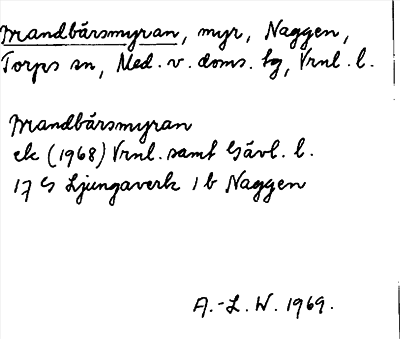 Mandbärsmyran, myr, Naggen,
Torps sn, Med. v. doms. sg, Vrnl. l.
Mandbärsmyran
ek (1968) Vrnl. samt Gävl. l.
17 G Ljungaverk 1 b Naggen
A.-L. W. 1969.